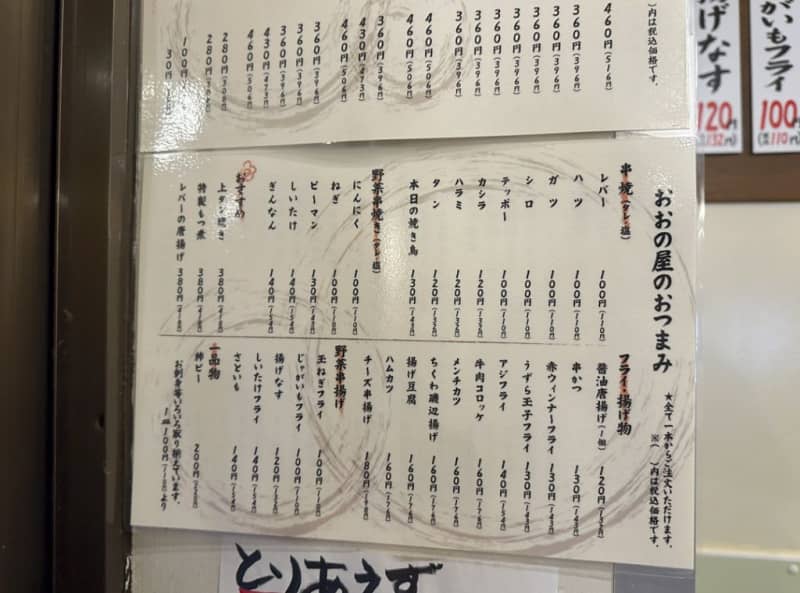 460円(516円)
360円(396円)
360円(396円)
360円(396円)
360円(396円)
360円(396円)
360円(396円)
460円(506円)
460円(506円)
360円(396円)
430円(473円)
460円(506円)
360円(396円)
360円(396円)
360円(396円)
430円(473円)
460円(506円)
280円(308円)
280円(308円)
100円
30円
)内は税込価格です。
げなす
120円
(132円)
がいもフライ
100円
(110円)
おおの屋のおつまみ
★全て一本からご注文いただけます。
※( )内は税込価格です。
串焼(タレ・塩)
レバー 100円(110円)
ハツ 100円(110円)
ガツ 100円(110円)
シロ 100円(110円)
テッポー 100円(110円)
カシラ 120円(132円)
ハラミ 120円(132円)
タン 120円(132円)
本日の焼き鳥 130円(143円)
野菜串焼き(タレ・塩)
にんにく 100円(110円)
ねぎ 100円(110円)
ピーマン 130円(143円)
しいたけ 140円(154円)
ぎんなん 140円(154円)
おすすめ
上タン焼き 380円(418円)
特製もつ煮 380円(418円)
レバーの唐揚げ 380円(418円)
フライ・揚げ物
醤油唐揚げ(1個) 120円(132円)
串かつ 130円(143円)
赤ウィンナーフライ 130円(143円)
うずら玉子フライ 130円(143円)
アジフライ 140円(154円)
牛肉コロッケ 160円(176円)
メンチカツ 160円(176円)
ちくわ磯辺揚げ 160円(176円)
揚げ豆腐 160円(176円)
ハムカツ 160円(176円)
チーズ串揚げ 180円(198円)
野菜串揚げ
玉ねぎフライ 100円(110円)
じゃがいもフライ 100円(110円)
揚げなす 120円(132円)
しいたけフライ 140円(154円)
さといも 140円(154円)
一品物
柿ピー 200円(220円)
お刺身等いろいろ取り揃えています。
100円(110円)より
とりあえず